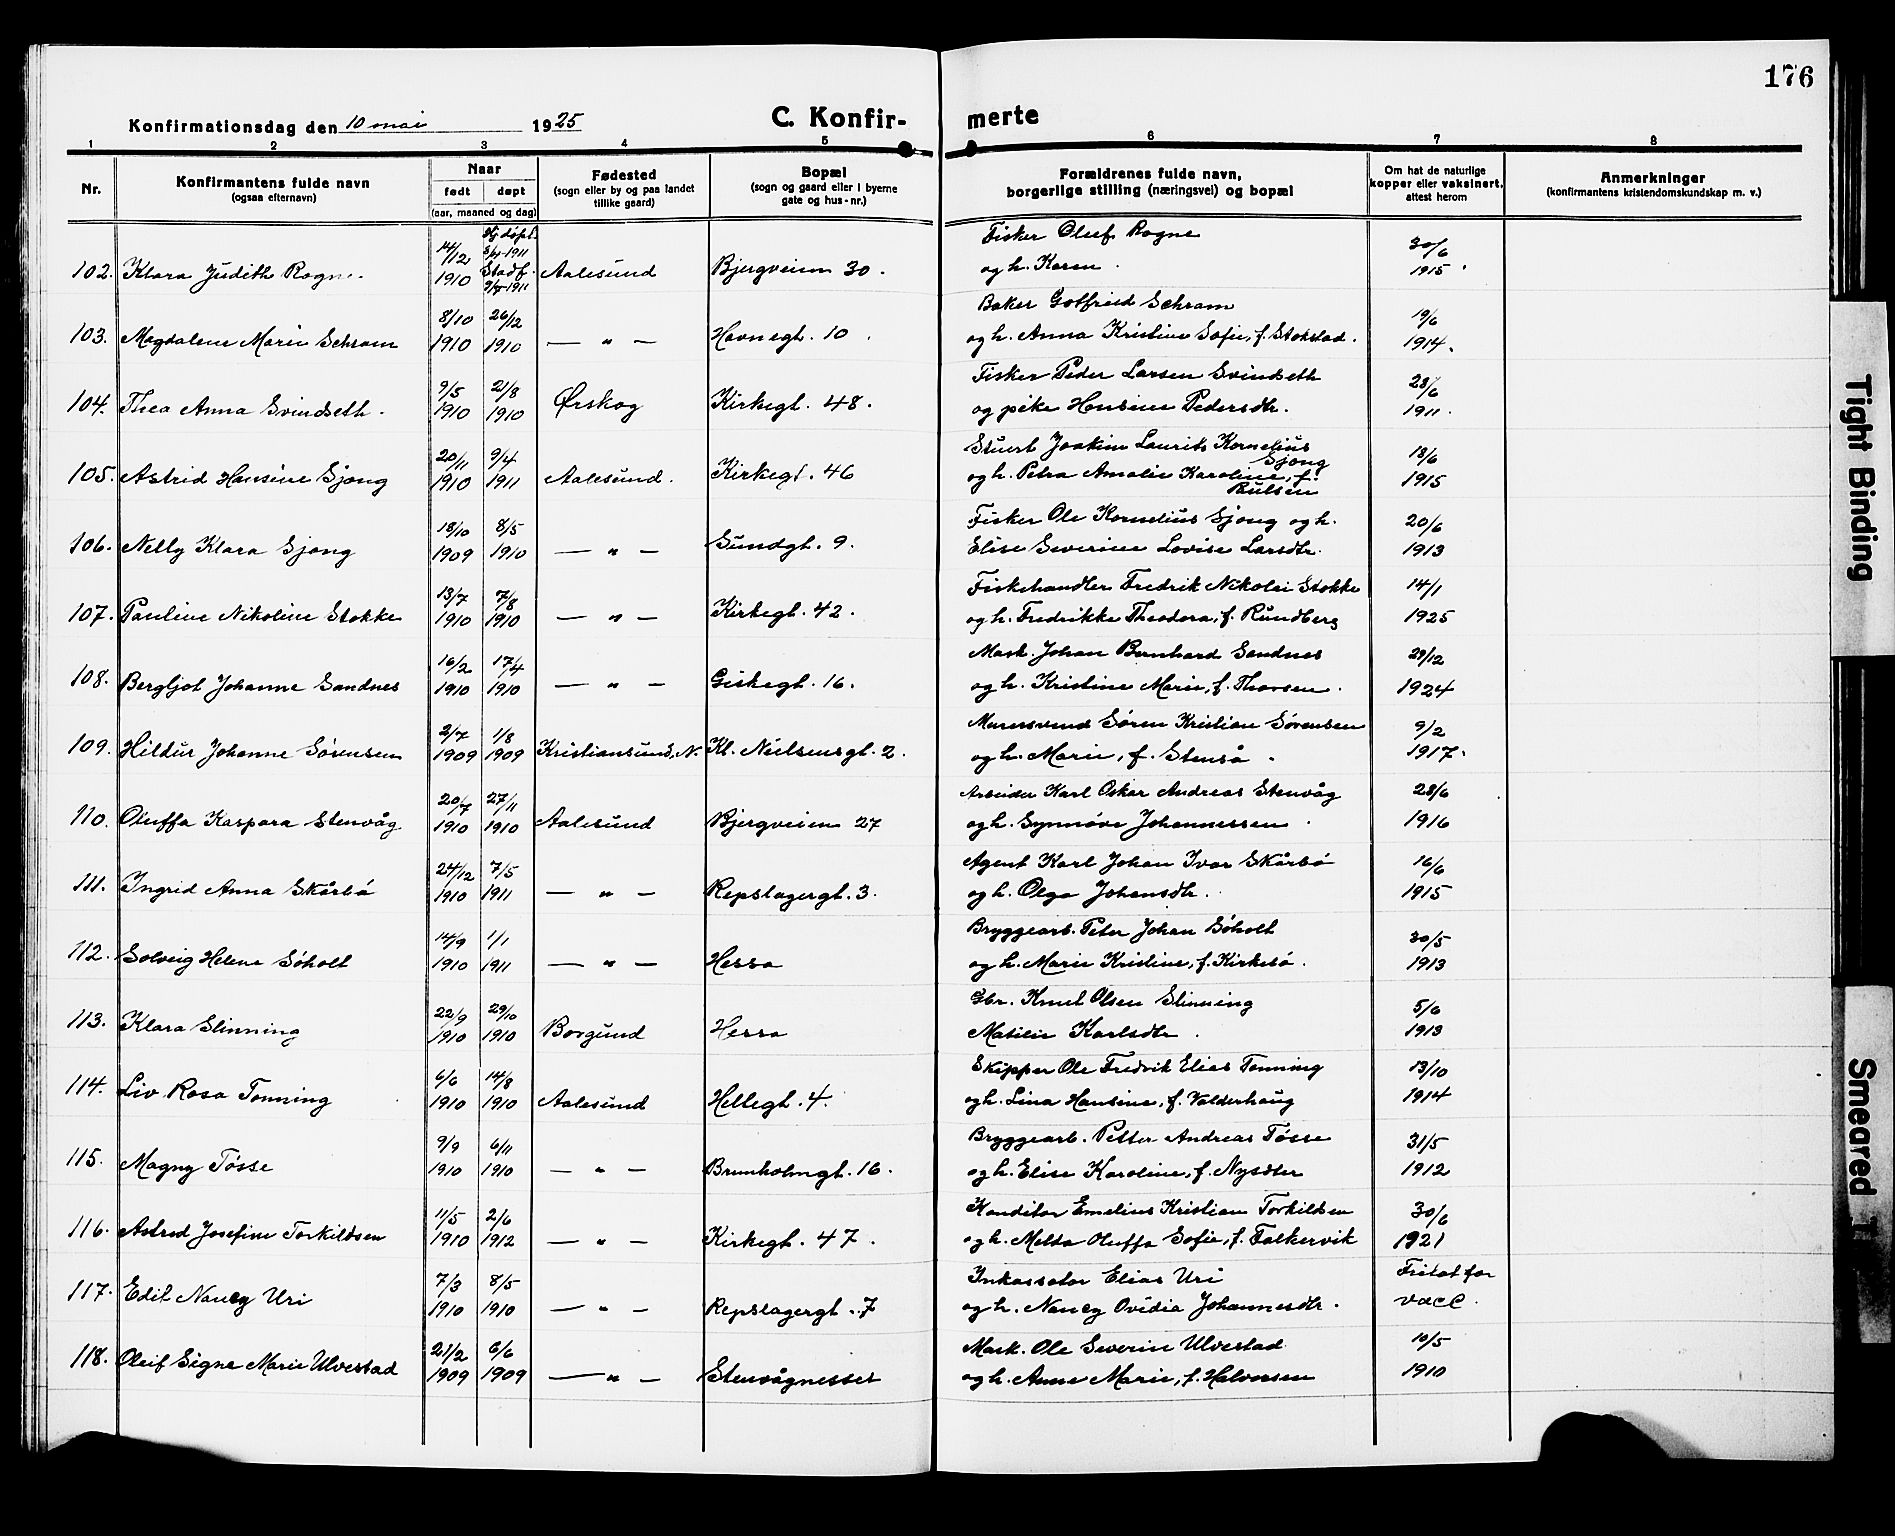 176
Konfirmationsdag den 10 mai 1925
C. Konfirmerte
1 2 3 4 5 6 7 8
Nr.
Konfirmantens fulde navn
(ogsaa efternavn)
Naar
født døpt
(aar, maaned og dag)
Fødested
(sogn eller by og paa landet
tillike gaard)
Bopæl
(sogn og gaard eller i byerne
gate og hus-nr.)
Forældrenes fulde navn,
borgerlige stilling (næringsvei) og bopæl
Om hat de naturlige
kopper eller vaksinert,
attest herom
Anmerkninger
(konfirmantens kristendomskundskap m. v.)
102. Klara Judith Rogne. 14/12 1910 Hj.døpt. 8/4-1911 Stadf. Aalesund Bjergveien 30.
Fisker Oluf Rogne
og h. Karen. 30/6 1915.
103. Magdalene Marie Schram 8/10 1910 26/12 1910 — " — Havnegt. 10.
Baker Gotfried Schram
og h. Anna Kristine Sofie, f. Stokstad. 19/6 1914.
104. Thea Anna Svindseth. 9/5 1910 21/8 1910 Ørskog Kirkegt. 48.
Fisker Peder Larsen Svindseth
og pike Hansine Pedersdtr. 28/6 1911.
105. Astrid Hansine Sjong 20/11 1910 9/4 1911 Aalesund. Kirkegt. 46
Stuert Joakim Laurits Kornelius
Sjong
og h. Petra Amalie Karoline, f.
Paulsen 18/6 1915
106. Nelly Klara Sjong 18/10 1909 8/5 1910 — " — Sundgt. 9.
Fisker Ole Kornelius Sjong og h.
Elise Severine Lovise Larsdtr. 20/6 1913
107. Pauline Nikoline Stokke 13/7 1910 7/8 1910 — " — Kirkegt. 42.
Fiskehandler Fredrik Nikolai Stokke
og h. Fredrikke Theodora, f. Rundberg 14/1 1925
108. Bergljot Johanne Sandnes 16/2 1910 17/4 1910 — " — Giskegt. 16.
Mask. Johan Bernhard Sandnes
og h. Kristine Marie, f. Thorsen. 29/12 1924
109. Hildur Johanne Sørensen 2/7 1909 1/8 1909 Kristiansund, N. Kl. Nielsensgt. 2.
Murersvend Søren Kristian Sørensen
og h. Marie, f. Stensø. 9/2 1917.
110. Oluffa Kaspara Stenvåg 20/7 1910 27/11 1910 Aalesund Bjergveien 27
Arbeider Karl Oskar Andreas Stenvåg
og h. Synnøve Johannessen. 28/6 1916
111. Ingrid Anna Skårbø 24/12 1910 7/5 1911 — " — Repslagergt. 3.
Agent Karl Johan Ivar Skårbø
og h. Olga Johansdtr. 16/6 1915
112. Solveig Helene Søholt 14/9 1910 1/1 1911 — " — Hessa
Bryggearb. Peter Johan Søholt
og h. Marie Kristine, f. Kirkebø. 30/5 1913
113. Klara Slinning 22/9 1910 29/10 1910 Borgund Hessa
Gbr. Knut Olsen Slinning
Matilie Karlsdtr. 5/6 1913
114. Liv Rosa Tonning 6/6 1910 14/8 1910 Aalesund Hellegt. 4.
Skipper Ole Fredrik Elias Tonning
og h. Lina Hansine, f. Valderhaug 13/10 1914
115. Magny Tøsse 9/9 1910 6/11 1910 — " — Brunholmgt. 16.
Bryggearb. Petter Andreas Tøsse
og h. Elise Karoline, f. Nysæter 31/5 1912
116. Astrid Josefine Torkildsen 11/5 1910 2/6 1912 — " — Kirkegt. 47.
Konditor Emelius Kristian Torkildsen
og h. Melda Oluffa Sofie, f. Falkervik 30/6 1921
117. Edit Nancy Uri 7/3 1910 8/5 1910 — " — Repslagergt. 7
Inkassator Elias Uri
og h. Nancy Ovidia Johannesdtr. Fritat for vacc.
118. Oleif Signe Marie Ulvestad 21/2 1909 6/6 1909 — " — Stenvågnesset
Mask. Ole Severin Ulvestad
og h. Anne Marie, f. Halvorsen 10/5 1910
Tight Binding
Smeared